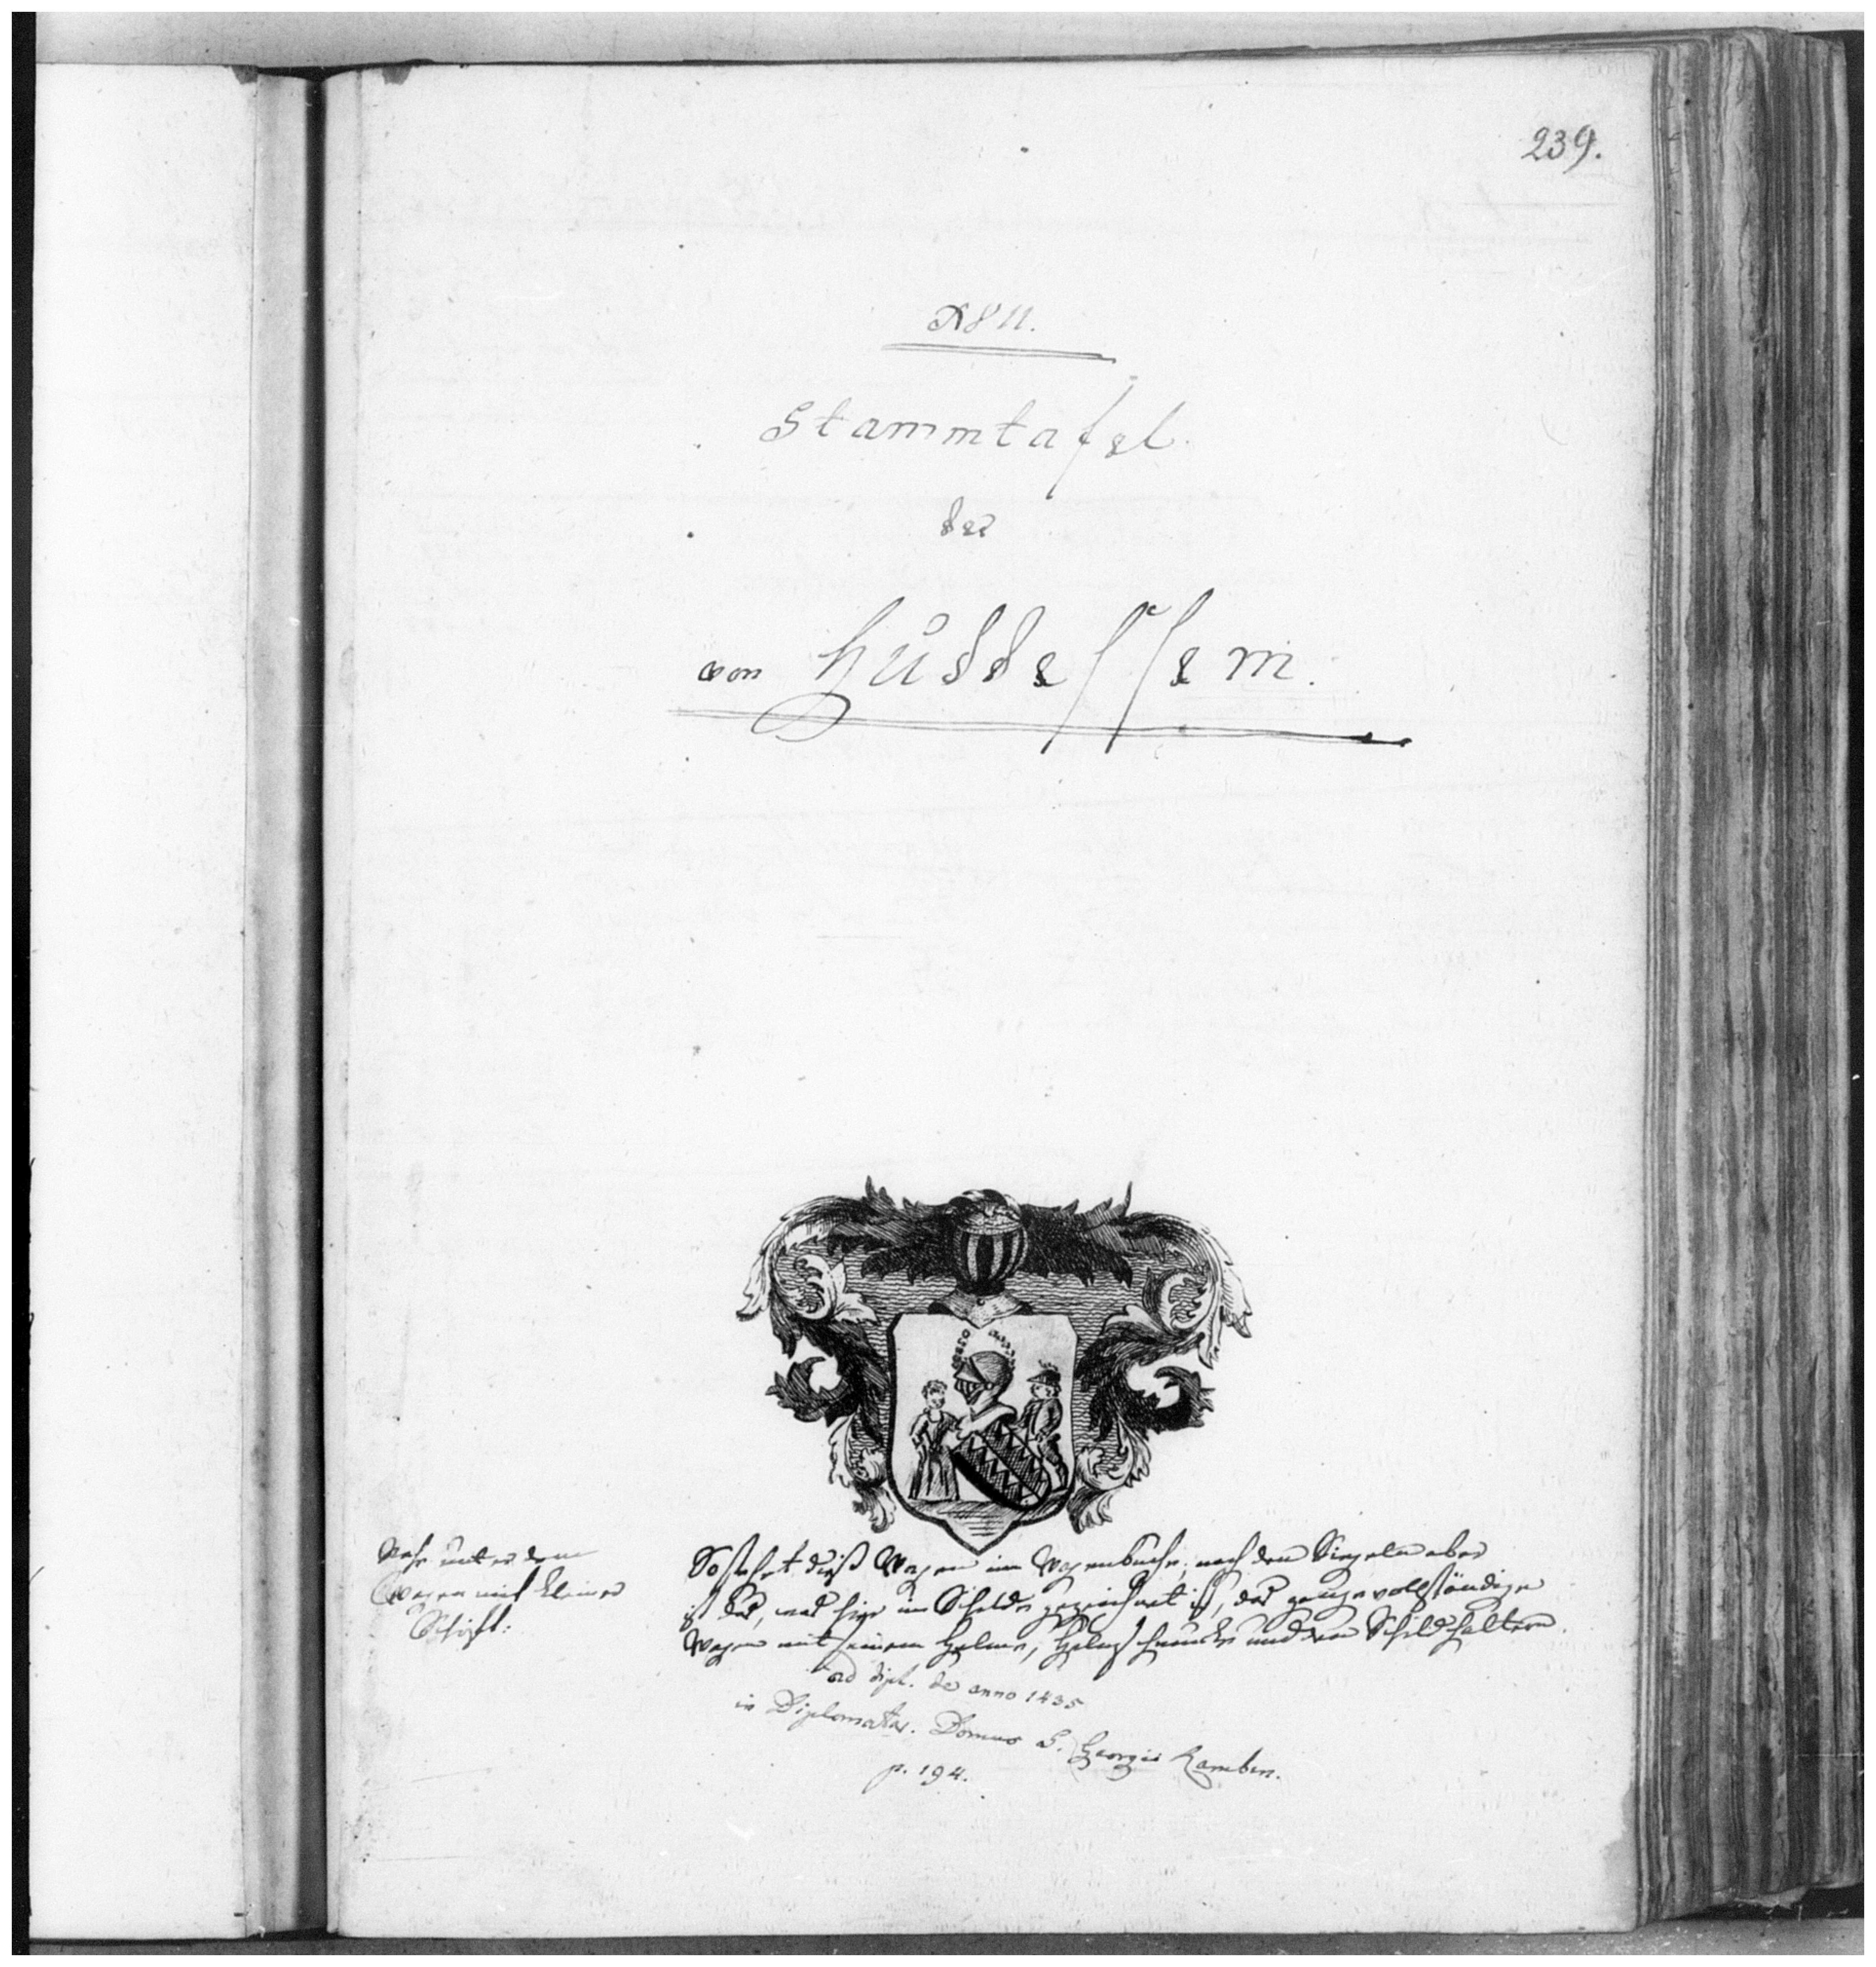 239.
Stammtafel
der
von Huddessem.
unter dem
Wapen mit kleiner
Schrift:
So stehet dieß Wapen im Wapenbuche; nach den Siegeln aber
ist das, was hier im Schilde gezeichnet ist, das ganze vollständige
Wapen mit seinem Helme, Helmschmucke und den Schildhaltern.
ad dipl. de anno 1435
in Diplomatar. Domus S. Georgii
p. 194.